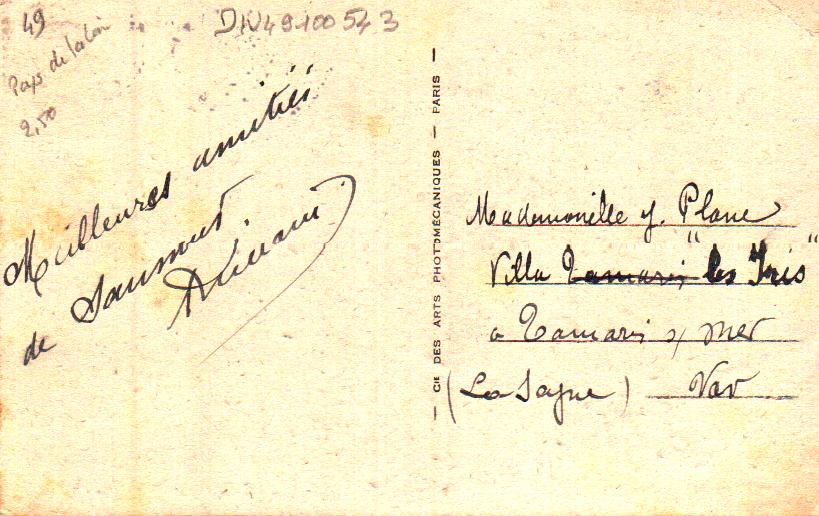 49
DN49-100 543
Pays de la Loire
2,50
Meilleures amitiés
de Saumur.
— Cie DES ARTS PHOTOMÉCANIQUES — PARIS —
Mademoiselle y. Plane
Villa Tamaris "les Iris"
a Tamaris s/ mer
(La Seyne) Var